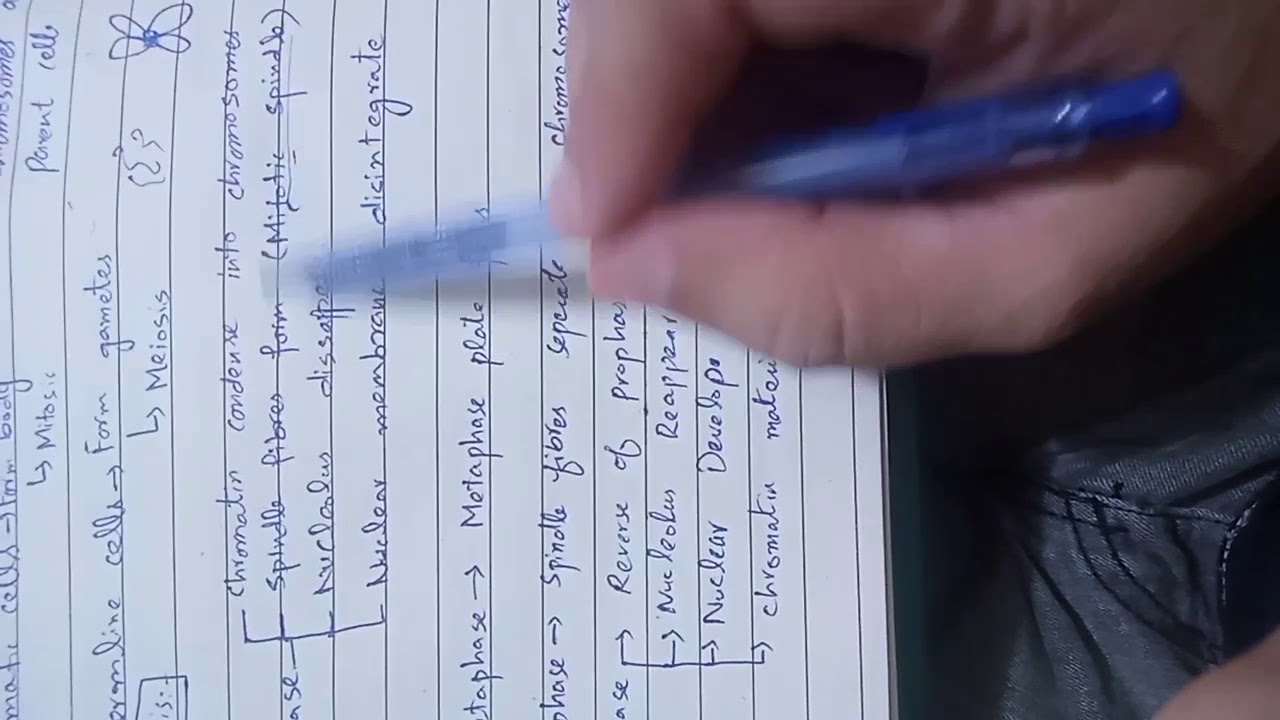 matic cells → form body
↳ Mitosis Parent cells
ermline cells → Form gametes
↳ Meiosis
is:
Chromatin condense into chromosomes
ase → Spindle fibres form (Mitotic spindle)
Nucleolus
Nuclear membrane disintegrate
taphase → Metaphase plate
phase → Spindle fibres seperate chromosome
ase → Reverse of prophas
→ Nucleolus Reappear
→ Nuclear Develope
↳ chromatin materi